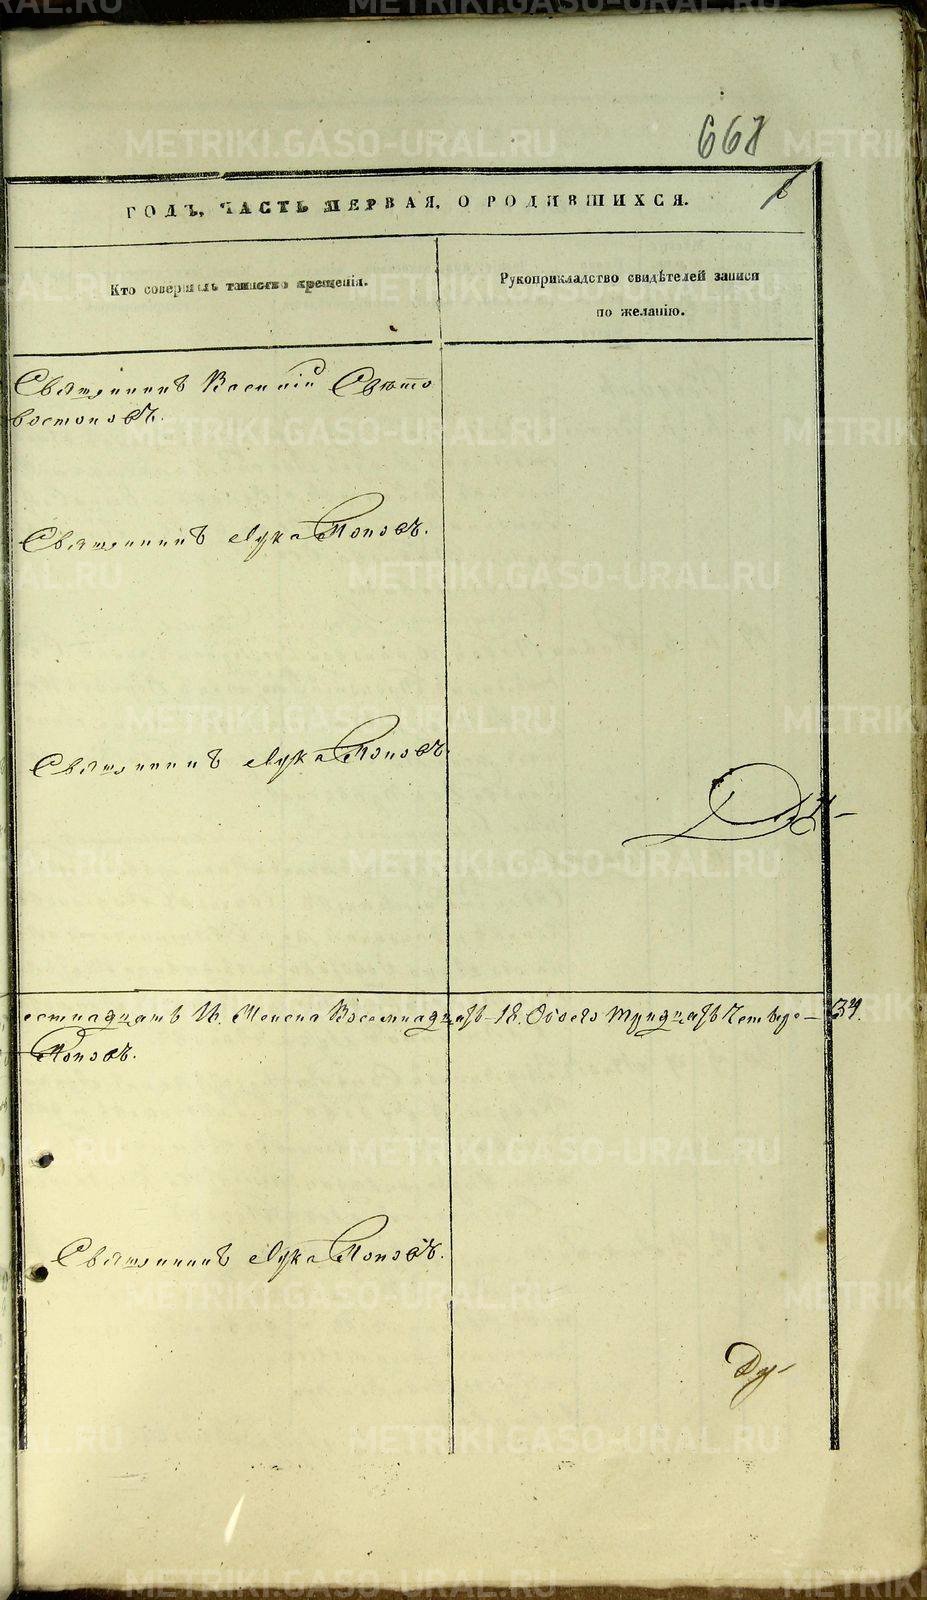 668
ГОДЪ, ЧАСТЬ ПЕРВАЯ, О РОДИВШИХСЯ.
Кто совершалъ таинство крещенія.
Рукоприкладство свидѣтелей записи
по желанію.
Священникъ Василій Свѣто
востоковъ.
Священникъ Лука Поповъ.
Священникъ Лука Поповъ.
естнадцать 16. Женска Восемнадцать 18. Обоего тридцать Четвере— 34.
Поповъ.
Священникъ Лука Поповъ.
METRIKI.GASO-URAL.RU